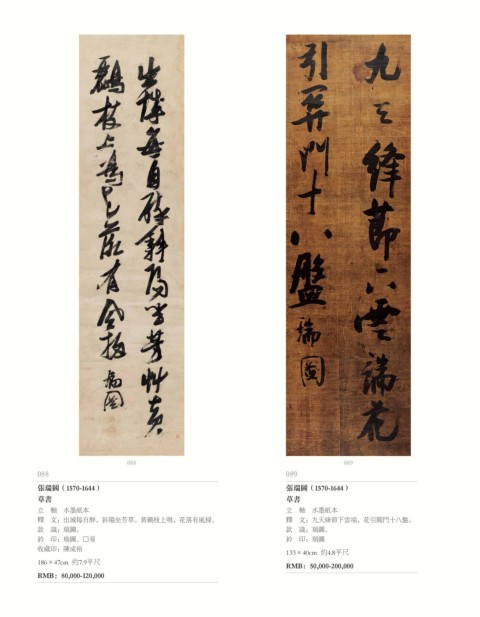 出城每自醉斜陽坐芳艸黃
鸝枝上鳴花落有風掃 瑞圖
088
088
張瑞圖（1570-1644）
草書
立　軸　水墨紙本
釋　文：出城每自醉。斜陽坐芳草。黃鸝枝上鳴，花落有風掃。
款　識：瑞圖。
鈐　印：瑞圖、□易
收藏印：陳成裕
186×47cm 約7.9平尺
RMB：80,000-120,000
九天絳節下雲端花
引開門十八盤 瑞圖
089
089
張瑞圖（1570-1644）
草書
立　軸　水墨紙本
釋　文：九天絳節下雲端，花引開門十八盤。
款　識：瑞圖。
鈐　印：瑞圖
133×40cm 約4.8平尺
RMB：50,000-200,000